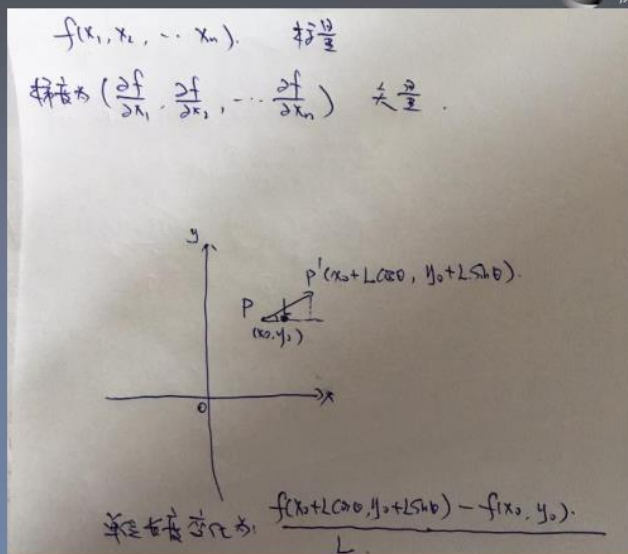 f(x₁, x₂, ... xₙ). 标量
梯度为 (∂f/∂x₁, ∂f/∂x₂, ... ∂f/∂xₙ) 矢量.
y
P'(x₀+Lcosθ, y₀+Lsinθ).
P
(x₀, y₀)
O x
单位长度变化为: f(x₀+Lcosθ, y₀+Lsinθ) - f(x₀, y₀). / L.